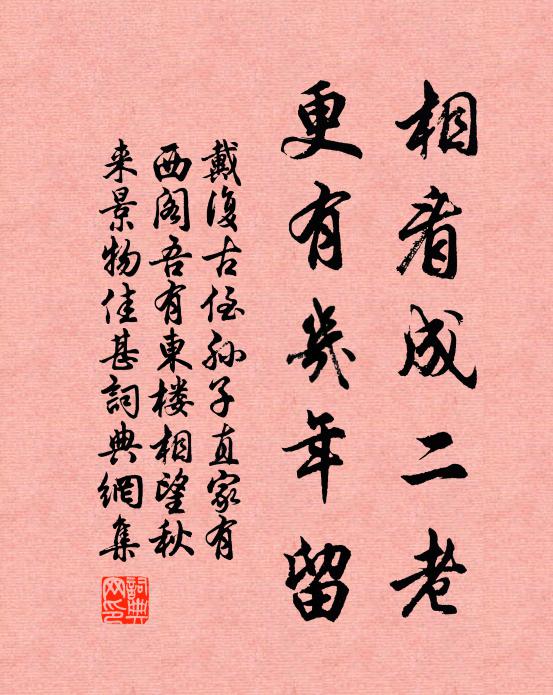 相看成二老
更有幾年留
戴復古侄孫子直家有
西閣吾有東楼相望秋
来景物佳甚詞典網集
詞典网印